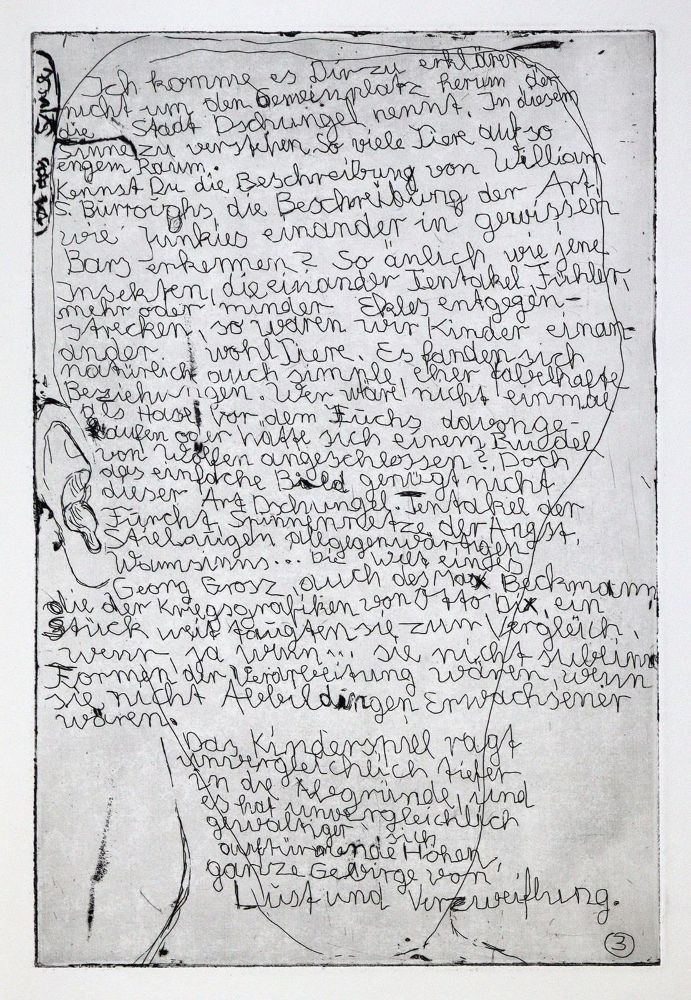 Ich komme es Dir zu erklären,
nicht um den Gemeinplatz herum der
die Stadt Dschungel nennt. In diesem
Sinne zu verstehen. So viele Tiere auf so
engem Raum.
Kennst Du die Beschreibung von William
S. Burroughs die Beschreibung der Art,
wie Junkies einander in gewissen
Bars erkennen? So änlich wie jene
Insekten, die einander Tentakel, Fühler,
mehr oder minder Ekles entgegen-
strecken, so waren wir Kinder einan-
ander wohl Tiere. Es fanden sich
natüreich auch simple eher fabelhafte
Beziehungen. Wer wäre nicht einmal
als Hase vor dem Fuchs davonge-
laufen oder hätte sich einem Rudel
von Wölfen angeschlossen? Doch
das einfache Bild genügt nicht
dieser Art Dschungel. Tentakel der
Furcht, Spinnennetze der Angst,
Stielaugen allgegenwärtigen
Wahnsinns... Die Welt eines
Georg Grosz, auch des Max Beckmann
die der Kriegsgrafiken von Otto Dix, ein
Stück weit taugten sie zum Vergleich,
wenn, ja wenn... sie nicht sublime
Formen der Verarbeitung wären, wenn
sie nicht Abbildungen Erwachsener
wären.
Das Kinderspiel ragt
unvergleichlich tiefer
in die Abgründe, und
es hat unvergleichlich
gewaltiger sich
auftürmende Höhen,
ganze Gebirge von
Lust und Verzweiflung.
3